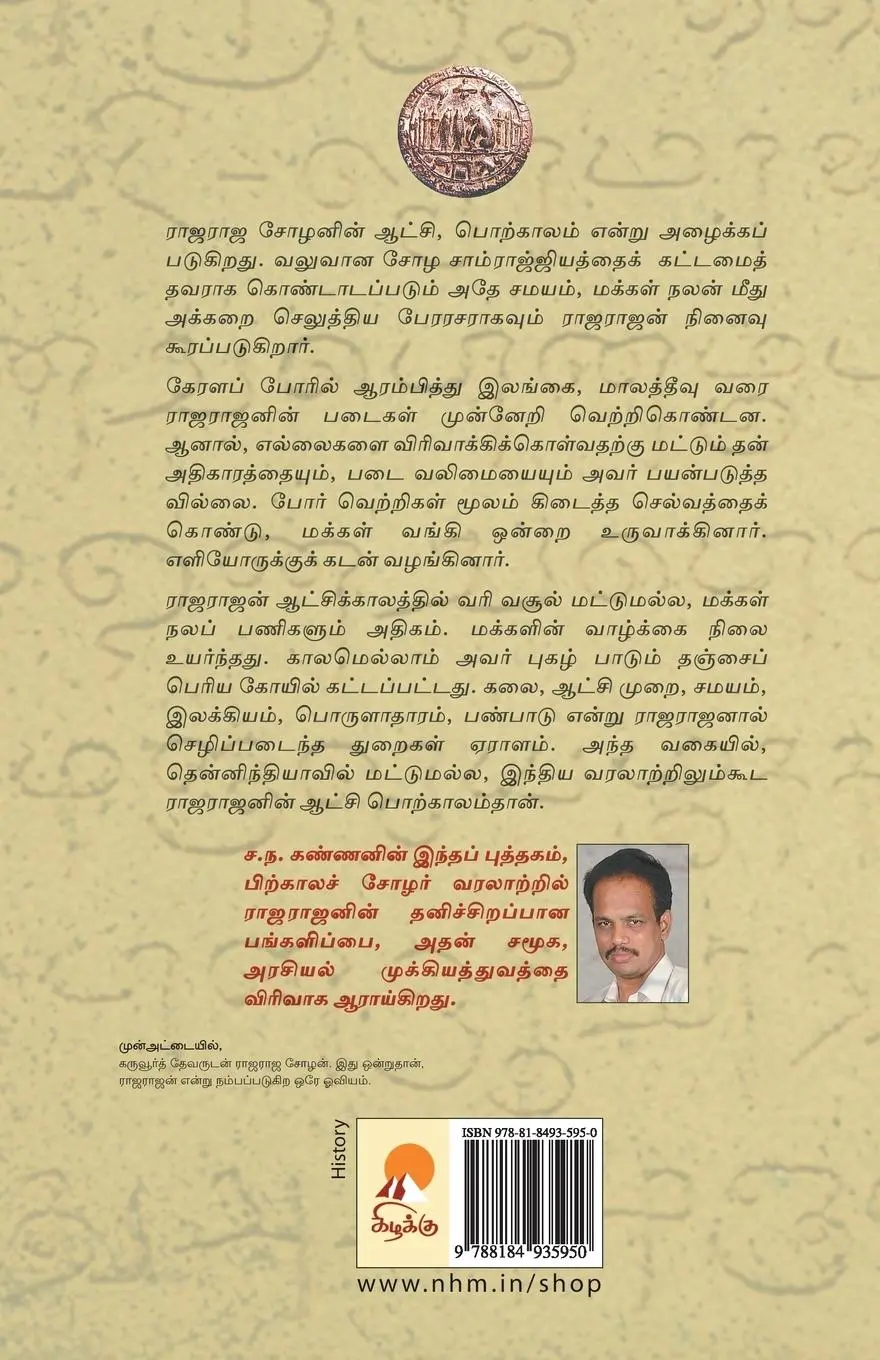 ராஜராஜ சோழனின் ஆட்சி, பொற்காலம் என்று அழைக்கப்
படுகிறது. வலுவான சோழ சாம்ராஜ்ஜியத்தைக் கட்டமைத்
தவராக கொண்டாடப்படும் அதே சமயம், மக்கள் நலன் மீது
அக்கறை செலுத்திய பேரரசராகவும் ராஜராஜன் நினைவு
கூரப்படுகிறார்.
கேரளப் போரில் ஆரம்பித்து இலங்கை, மாலத்தீவு வரை
ராஜராஜனின் படைகள் முன்னேறி வெற்றிகொண்டன.
ஆனால், எல்லைகளை விரிவாக்கிக்கொள்வதற்கு மட்டும் தன்
அதிகாரத்தையும், படை வலிமையையும் அவர் பயன்படுத்த
வில்லை. போர் வெற்றிகள் மூலம் கிடைத்த செல்வத்தைக்
கொண்டு, மக்கள் வங்கி ஒன்றை உருவாக்கினார்.
எளியோருக்குக் கடன் வழங்கினார்.
ராஜராஜன் ஆட்சிக்காலத்தில் வரி வசூல் மட்டுமல்ல, மக்கள்
நலப் பணிகளும் அதிகம். மக்களின் வாழ்க்கை நிலை
உயர்ந்தது. காலமெல்லாம் அவர் புகழ் பாடும் தஞ்சைப்
பெரிய கோயில் கட்டப்பட்டது. கலை, ஆட்சி முறை, சமயம்,
இலக்கியம், பொருளாதாரம், பண்பாடு என்று ராஜராஜனால்
செழிப்படைந்த துறைகள் ஏராளம். அந்த வகையில்,
தென்னிந்தியாவில் மட்டுமல்ல, இந்திய வரலாற்றிலும்கூட
ராஜராஜனின் ஆட்சி பொற்காலம்தான்.
ச.ந. கண்ணனின் இந்தப் புத்தகம்,
பிற்காலச் சோழர் வரலாற்றில்
ராஜராஜனின் தனிச்சிறப்பான
பங்களிப்பை, அதன் சமூக,
அரசியல் முக்கியத்துவத்தை
விரிவாக ஆராய்கிறது.
முன்அட்டையில்,
கருவூர்த் தேவருடன் ராஜராஜ சோழன். இது ஒன்றுதான்,
ராஜராஜன் என்று நம்பப்படுகிற ஒரே ஓவியம்.
History
கிழக்கு
ISBN 978-81-8493-595-0
9 788184 935950
www.nhm.in/shop